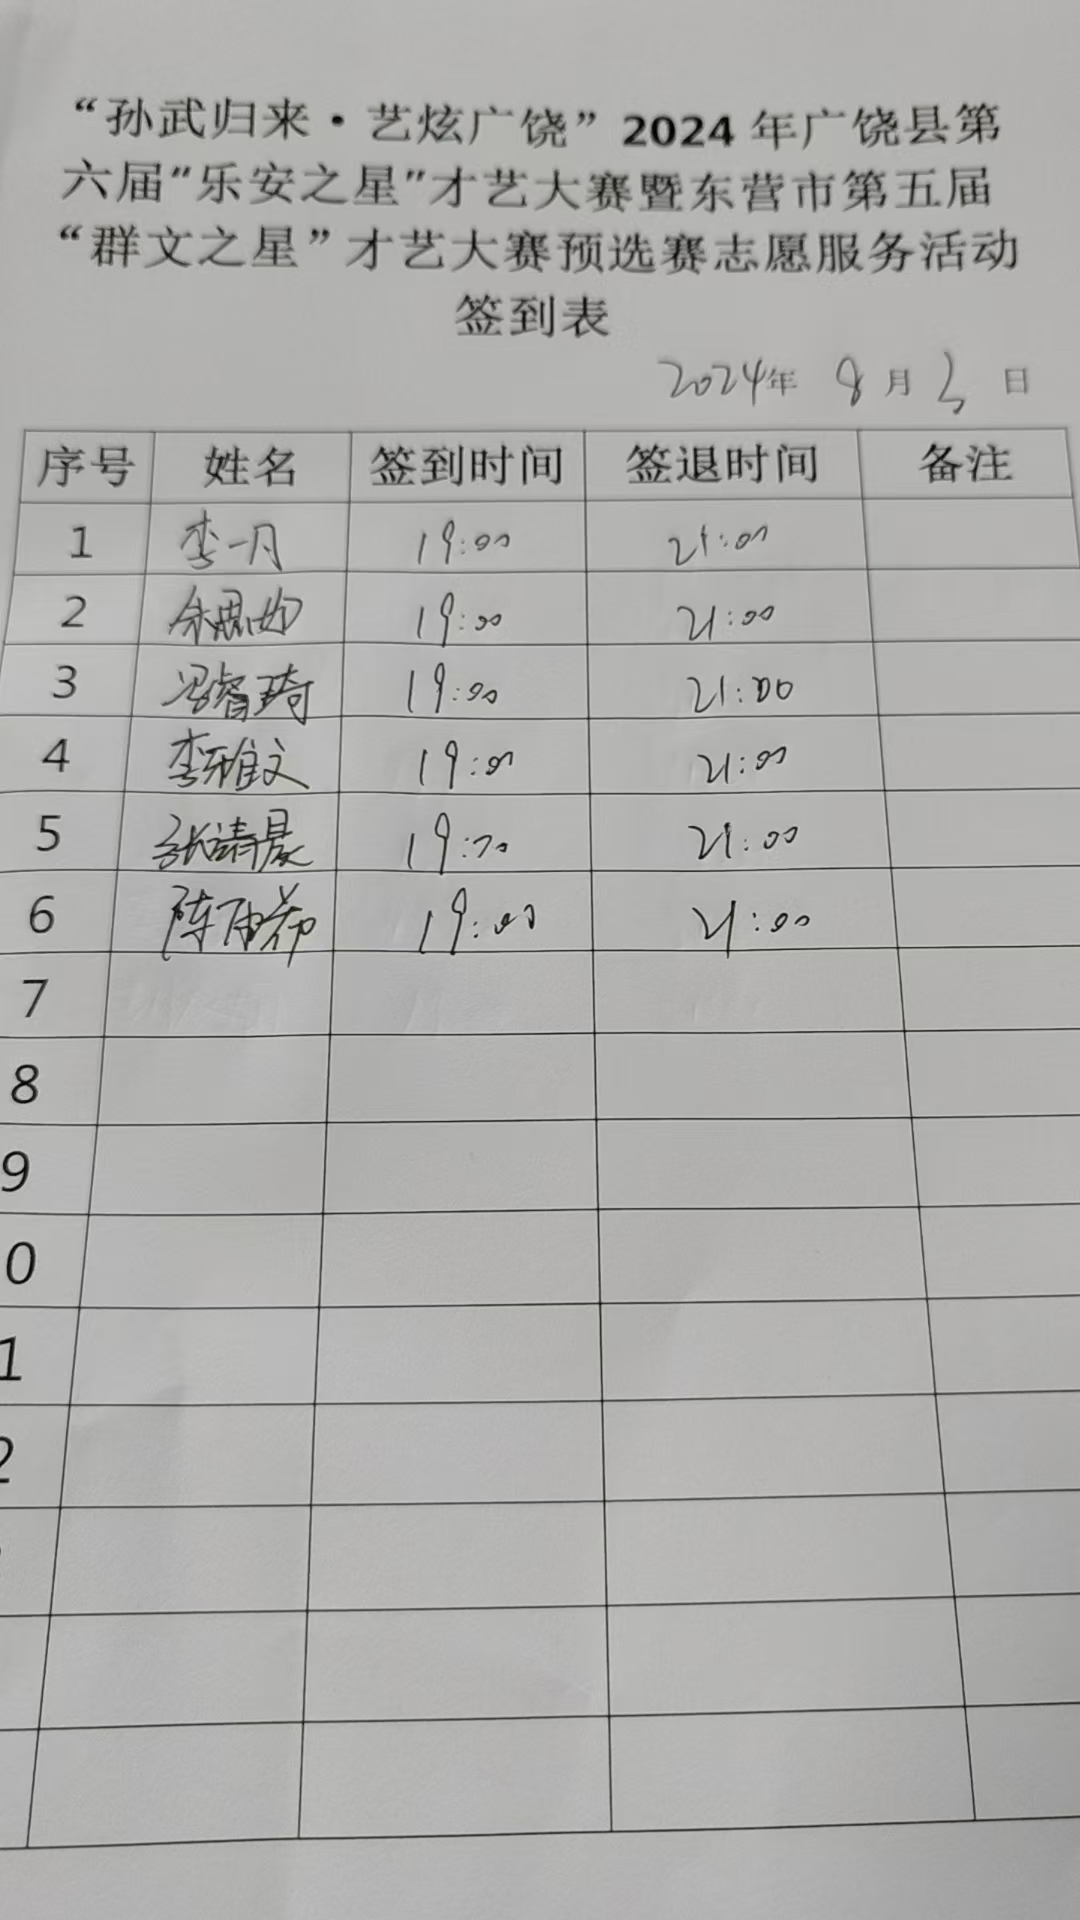 “孙武归来·艺炫广饶”2024年广饶县第
六届“乐安之星”才艺大赛暨东营市第五届
“群文之星”才艺大赛预选赛志愿服务活动
签到表
2024年 8月3日
序号 姓名 签到时间 签退时间 备注
1 李一月 19:00 21:00
2 19:00 21:00
3 冯睿琦 19:00 21:00
4 李雅文 19:00 21:00
5 张清晨 19:00 21:00
6 陈雨希 19:00 21:00
7
8
9
0
1
2